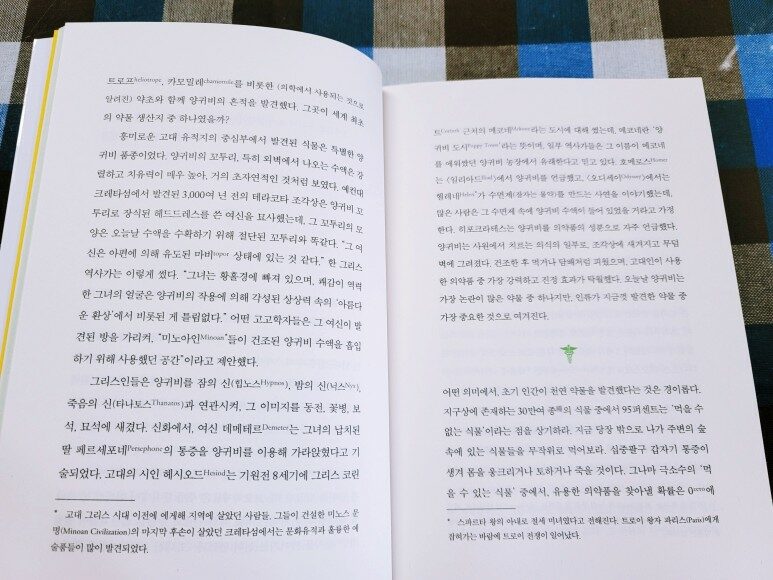 트로프heliotrope, 카모밀레chamomile를 비롯한 (의학에서 사용되는 것으로
알려진) 약초와 함께 양귀비의 흔적을 발견했다. 그곳이 세계 최초
의 약물 생산지 중 하나였을까?
흥미로운 고대 유적지의 중심부에서 발견된 식물은 특별한 양
귀비 품종이었다. 양귀비의 꼬투리, 특히 외벽에서 나오는 수액은 강
렬하고 치유력이 매우 높아, 거의 초자연적인 것처럼 보였다. 예컨대
크레타섬에서 발견된 3,000여 년 전의 테라코타 조각상은 양귀비 꼬
투리로 장식된 헤드드레스를 쓴 여신을 묘사했는데, 그 꼬투리의 모
양은 오늘날 수액을 수확하기 위해 절단된 꼬투리와 똑같다. “그 여
신은 아편에 의해 유도된 마비torpor 상태에 있는 것 같다.” 한 그리스
역사가는 이렇게 썼다. “그녀는 황홀경에 빠져 있으며, 쾌감이 역력
한 그녀의 얼굴은 양귀비의 작용에 의해 각성된 상상력 속의 ‘아름다
운 환상’에서 비롯된 게 틀림없다.” 어떤 고고학자들은 그 여신이 발
견된 방을 가리켜, “미노아인Minoan*들이 건조된 양귀비 수액을 흡입
하기 위해 사용했던 공간”이라고 제안했다.
그리스인들은 양귀비를 잠의 신(힙노스Hypnos), 밤의 신(닉스Nyx),
죽음의 신(타나토스Thanatos)과 연관시켜, 그 이미지를 동전, 꽃병, 보
석, 묘석에 새겼다. 신화에서, 여신 데메테르Demeter는 그녀의 납치된
딸 페르세포네Persephone의 통증을 양귀비를 이용해 가라앉혔다고 기
술되었다. 고대의 시인 헤시오드Hesiod는 기원전 8세기에 그리스 코린
* 고대 그리스 시대 이전에 에게해 지역에 살았던 사람들. 그들이 건설한 미노스 문
명(Minoan Civilization)의 마지막 후손이 살았던 크레타섬에서는 문화유적과 훌륭한 예
술품들이 많이 발견되었다.
트Corinth 근처의 메코네Mekone라는 도시에 대해 썼는데, 메코네란 ‘양
귀비 도시Poppy Town’라는 뜻이며, 일부 역사가들은 그 이름이 메코네
를 에워쌌던 양귀비 농장에서 유래한다고 믿고 있다. 호메로스Homer
는 《일리아드Iliad》에서 양귀비를 언급했고, 《오디세이Odyssey》에서는
헬레네Helen*가 수면제(잠자는 물약)를 만드는 사연을 이야기했는데,
많은 사람은 그 수면제 속에 양귀비 수액이 들어 있었을 거라고 가정
한다. 히포크라테스는 양귀비를 의약품의 성분으로 자주 언급했다.
양귀비는 사원에서 치르는 의식의 일부로, 조각상에 새겨지고 무덤
벽에 그려졌다. 건조한 후 먹거나 담배처럼 피웠으며, 고대인이 사용
한 의약품 중 가장 강력하고 진정 효과가 탁월했다. 오늘날 양귀비는
가장 논란이 많은 약물 중 하나지만, 인류가 지금껏 발견한 약물 중
가장 중요한 것으로 여겨진다.
어떤 의미에서, 초기 인간이 천연 약물을 발견했다는 것은 경이롭다.
지구상에 존재하는 30만여 종種의 식물 중에서 95퍼센트는 ‘먹을 수
없는 식물’이라는 점을 상기하라. 지금 당장 밖으로 나가 주변의 숲
속에 있는 식물들을 무작위로 먹어보라. 십중팔구 갑자기 통증이
생겨 몸을 웅크리거나 토하거나 죽을 것이다. 그나마 극소수의 ‘먹
을 수 있는 식물’ 중에서, 유용한 의약품을 찾아낼 확률은 0zero에
* 스파르타 왕의 아내로 절세 미녀였다고 전해진다. 트로이 왕자 파리스(Paris)에게
잡혀가는 바람에 트로이 전쟁이 일어났다.